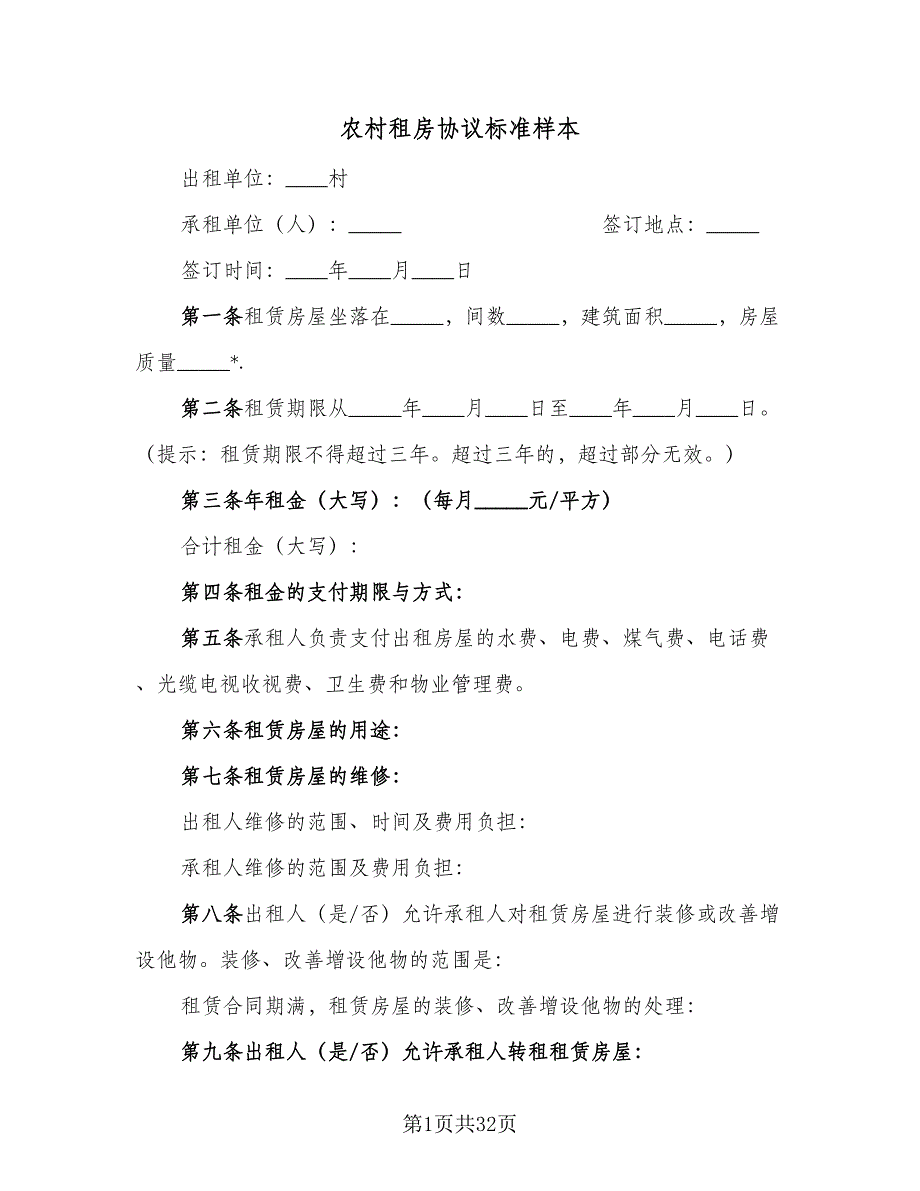 农村租房协议标准样本
出租单位：____村
承租单位（人）：_____ 签订地点：_____
签订时间：____年____月____日
第一条租赁房屋坐落在_____，间数_____，建筑面积_____，房屋
质量_____*.
第二条租赁期限从_____年____月____日至____年____月____日。
（提示：租赁期限不得超过三年。超过三年的，超过部分无效。）
第三条年租金（大写）：（每月_____元/平方）
合计租金（大写）：
第四条租金的支付期限与方式：
第五条承租人负责支付出租房屋的水费、电费、煤气费、电话费
、光缆电视收视费、卫生费和物业管理费。
第六条租赁房屋的用途：
第七条租赁房屋的维修：
出租人维修的范围、时间及费用负担：
承租人维修的范围及费用负担：
第八条出租人（是/否）允许承租人对租赁房屋进行装修或改善增
设他物。装修、改善增设他物的范围是：
租赁合同期满，租赁房屋的装修、改善增设他物的处理：
第九条出租人（是/否）允许承租人转租租赁房屋：
第1页共32页